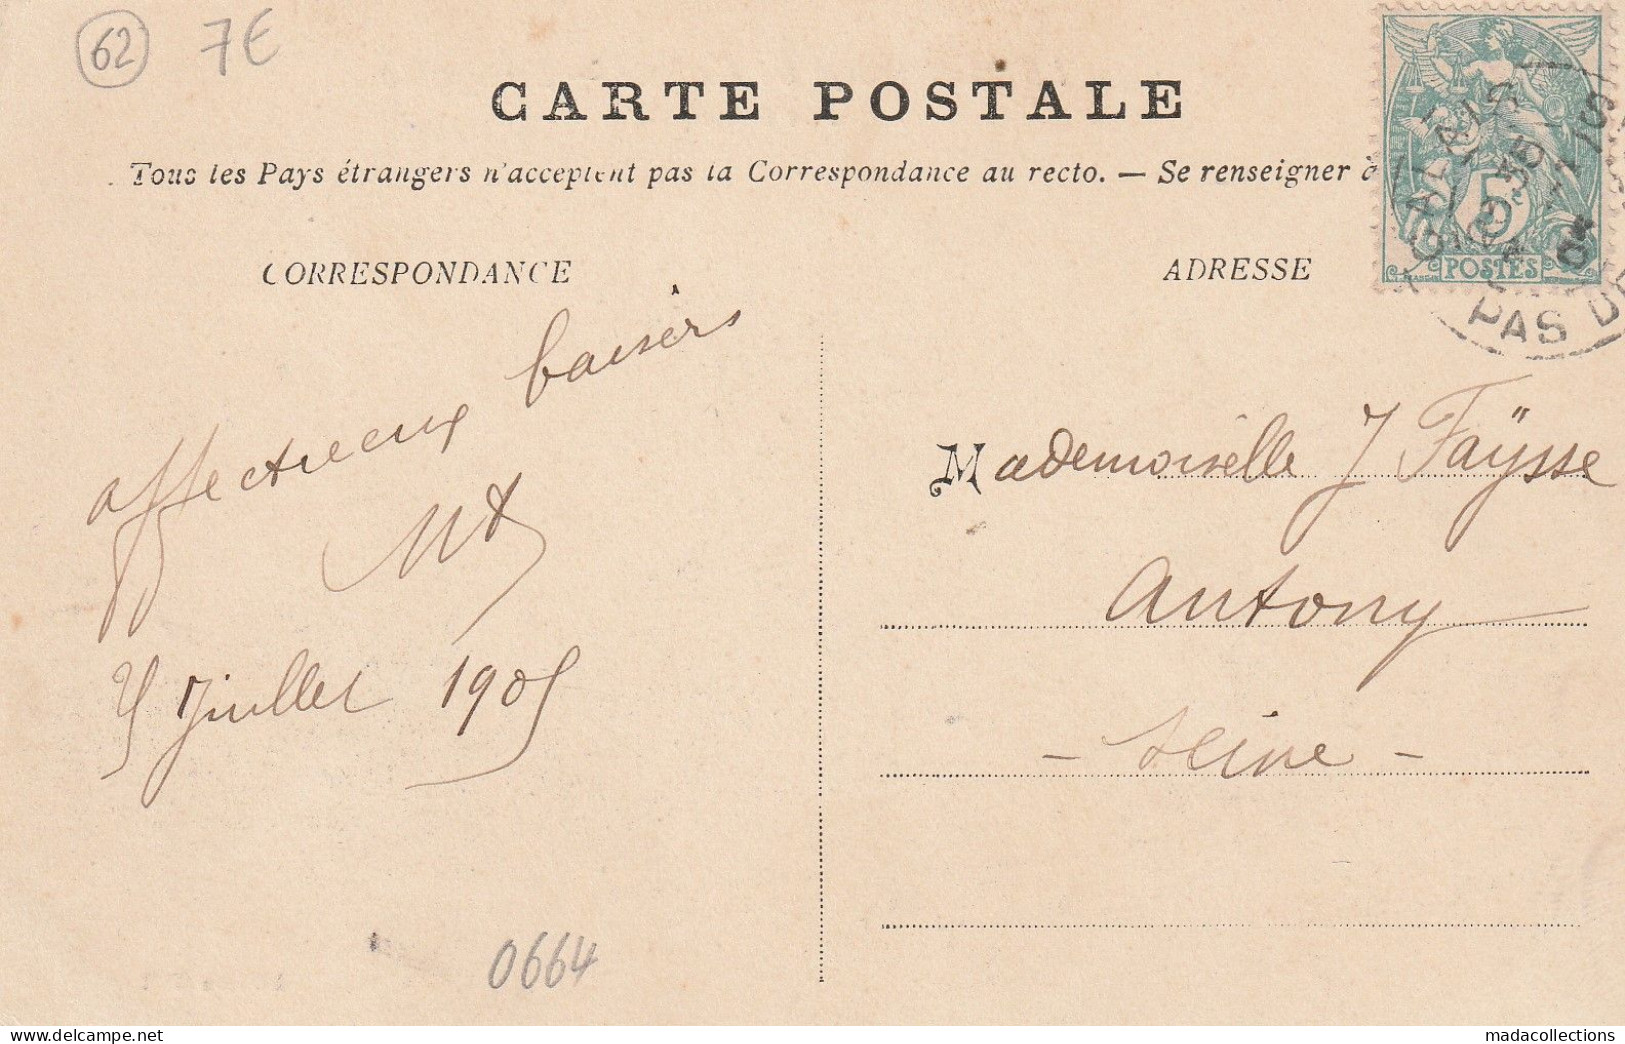 62 7E
CARTE POSTALE
Tous les Pays étrangers n'acceptent pas la Correspondance au recto. — Se renseigner à
CORRESPONDANCE
ADRESSE
5c
POSTES
CALAIS
PAS DE
affectueux baisers
Juillet 1905
Mademoiselle J Faÿsse
Antony
- Seine -
0664
madacollections